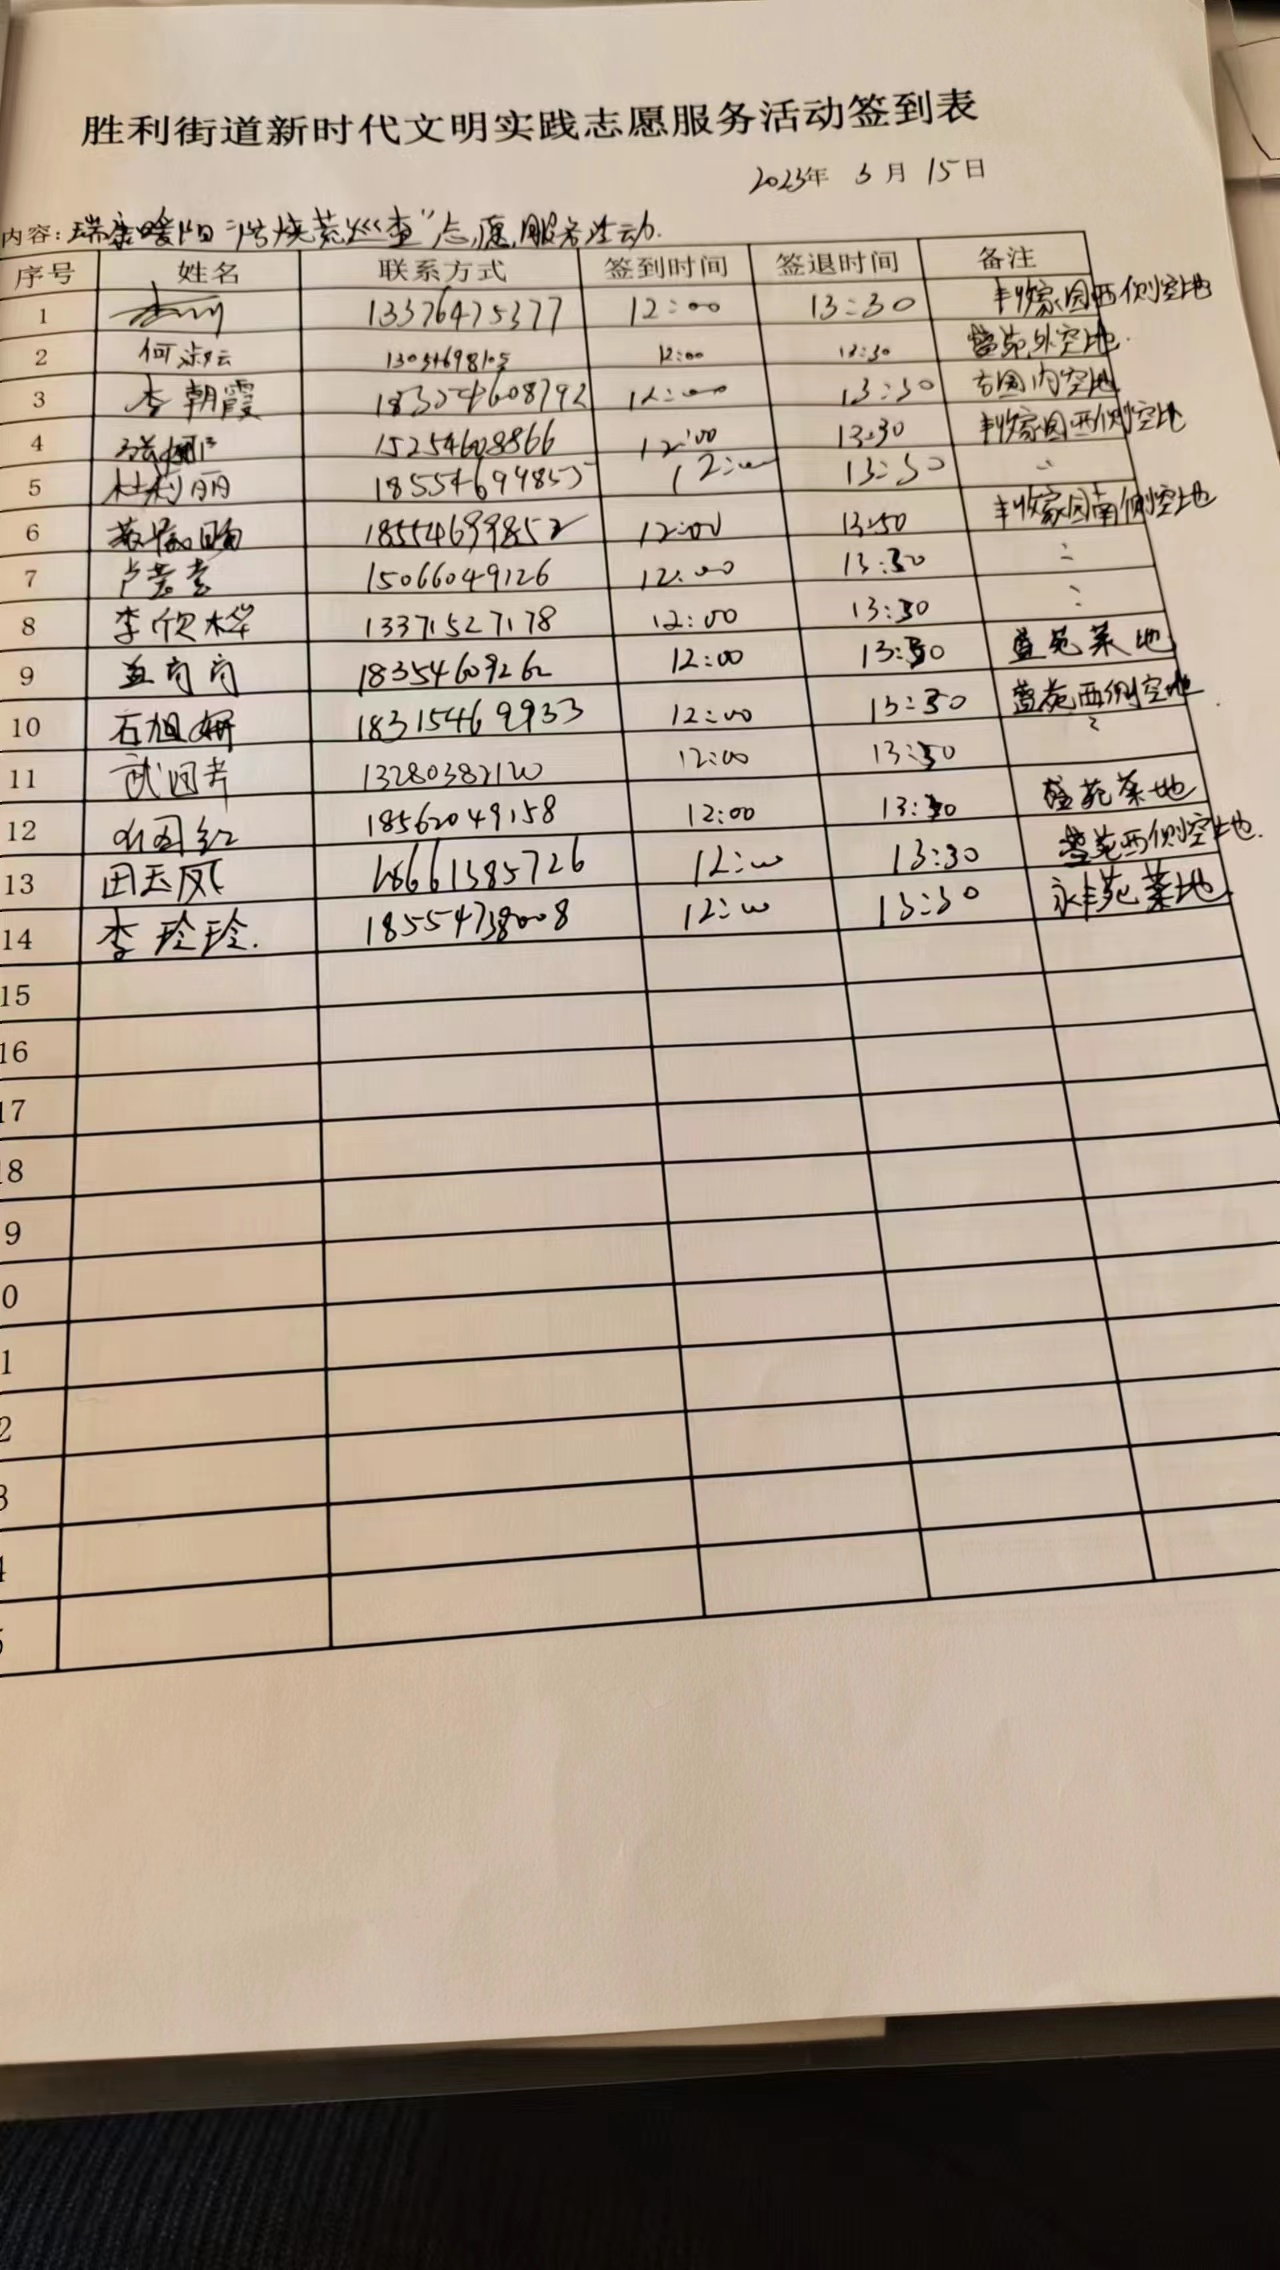 胜利街道新时代文明实践志愿服务活动签到表
2023年 3月 15日
内容: 瑞康暖阳 烧荒巡查”志愿服务活动.
序号 姓名 联系方式 签到时间 签退时间 备注
1 13376475377 12:00 13:30 丰收家园西侧空地
2 何淑云 12:00 13:30 外空地.
3 李朝霞 12:00 13:30 内空地
4 15254608866 12:00 13:30 丰收家园西侧空地
5 杜利丽 12:00 13:30 〃
6 18554699852 12:00 13:30 丰收家园南侧空地
7 15066049126 12:00 13:30 〃
8 李欣桦 13371527178 12:00 13:30 〃
9 孟苛苛 18354609262 12:00 13:30 菜地
10 石旭妍 18315469933 12:00 13:30 西侧空地
11 13280382120 12:00 13:30 〃
12 18562049158 12:00 13:30 菜地
13 田玉凤 18661385726 12:00 13:30 西侧空地.
14 李玲玲. 18554738008 12:00 13:30 永丰苑菜地
15
16
17
18
9
0
1
2
3
4
5